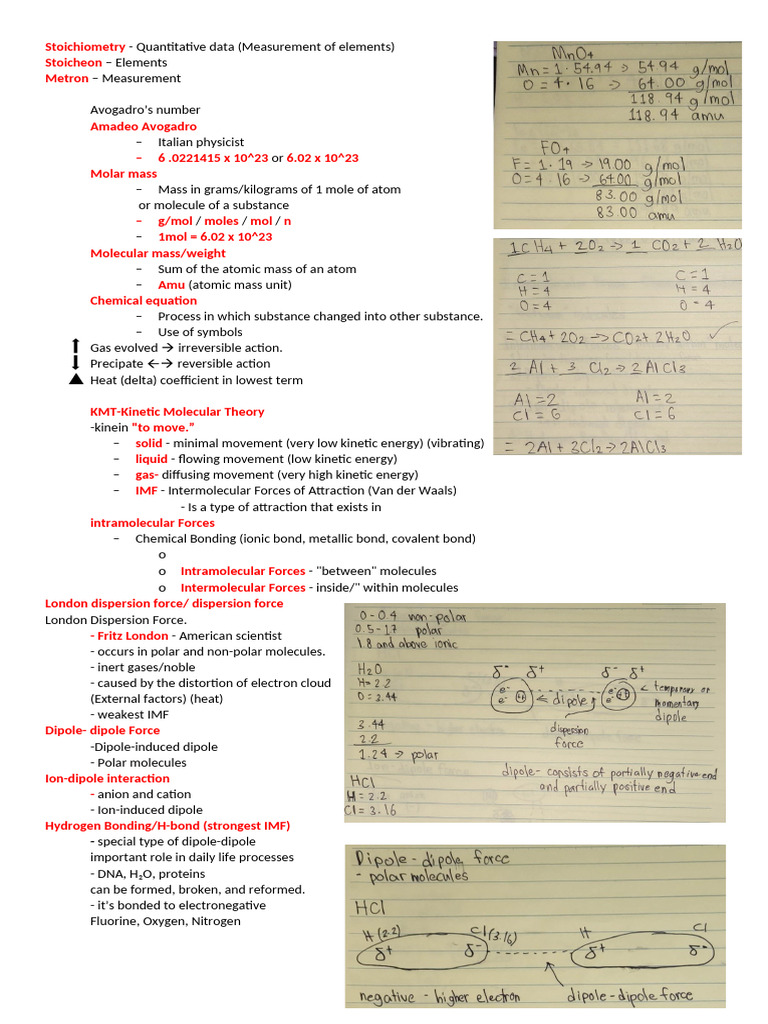 Stoichiometry - Quantitative data (Measurement of elements)
Stoicheon – Elements
Metron – Measurement
Avogadro's number
Amadeo Avogadro
− Italian physicist
− 6 .0221415 x 10^23 or 6.02 x 10^23
Molar mass
− Mass in grams/kilograms of 1 mole of atom
or molecule of a substance
− g/mol / moles / mol / n
− 1mol = 6.02 x 10^23
Molecular mass/weight
− Sum of the atomic mass of an atom
− Amu (atomic mass unit)
Chemical equation
− Process in which substance changed into other substance.
− Use of symbols
⬆ Gas evolved → irreversible action.
⬇ Precipate ←→ reversible action
▲ Heat (delta) coefficient in lowest term
KMT-Kinetic Molecular Theory
-kinein "to move."
− solid - minimal movement (very low kinetic energy) (vibrating)
− liquid - flowing movement (low kinetic energy)
− gas- diffusing movement (very high kinetic energy)
− IMF - Intermolecular Forces of Attraction (Van der Waals)
- Is a type of attraction that exists in
intramolecular Forces
− Chemical Bonding (ionic bond, metallic bond, covalent bond)
o
o Intramolecular Forces - "between" molecules
o Intermolecular Forces - inside/" within molecules
London dispersion force/ dispersion force
London Dispersion Force.
- Fritz London - American scientist
- occurs in polar and non-polar molecules.
- inert gases/noble
- caused by the distortion of electron cloud
(External factors) (heat)
- weakest IMF
Dipole- dipole Force
-Dipole-induced dipole
- Polar molecules
Ion-dipole interaction
- anion and cation
- Ion-induced dipole
Hydrogen Bonding/H-bond (strongest IMF)
- special type of dipole-dipole
important role in daily life processes
- DNA, H₂O, proteins
can be formed, broken, and reformed.
- it's bonded to electronegative
Fluorine, Oxygen, Nitrogen
MnO4
Mn = 1 · 54.94 → 54.94 g/mol
O = 4 · 16 → 64.00 g/mol
118.94 g/mol
118.94 amu
FO4
F = 1 · 19 → 19.00 g/mol
O = 4 · 16 → 64.00 g/mol
83.00 g/mol
83.00 amu
1 CH4 + 2O2 → 1 CO2 + 2 H2O
C = 1 C = 1
H = 4 H = 4
O = 4 O = 4
= CH4 + 2O2 → CO2 + 2H2O ✓
2 Al + 3 Cl2 → 2 AlCl3
Al = 2 Al = 2
Cl = 6 Cl = 6
= 2Al + 3Cl2 → 2AlCl3
0 - 0.4 non-polar
0.5 - 1.7 polar
1.8 and above ionic
H2O
H = 2.2
O = 3.44
3.44
2.2
1.24 → polar
HCl
H = 2.2
Cl = 3.16
δ- δ+ δ- δ+
e- e- ++ ← dipole → e- e- ++ ← temporary or
momentary
dipole
dispersion
force
dipole - consists of partially negative end
and partially positive end
Dipole - dipole force
- polar molecules
HCl
H (2.2) Cl (3.16) H Cl
δ+ δ- δ+ δ-
negative - higher electron dipole-dipole force